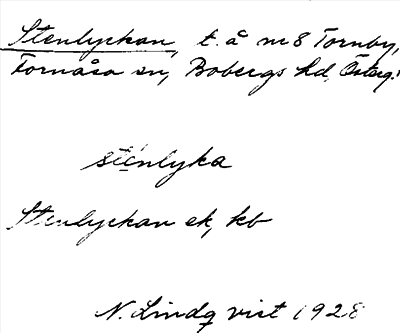 Stenlyckan, t. å m 8 Tornby,
Fornåsa sn, Bobergs hd, Österg.
sténlyka
Stenlyckan ek, kb
N. Lindqvist 1928